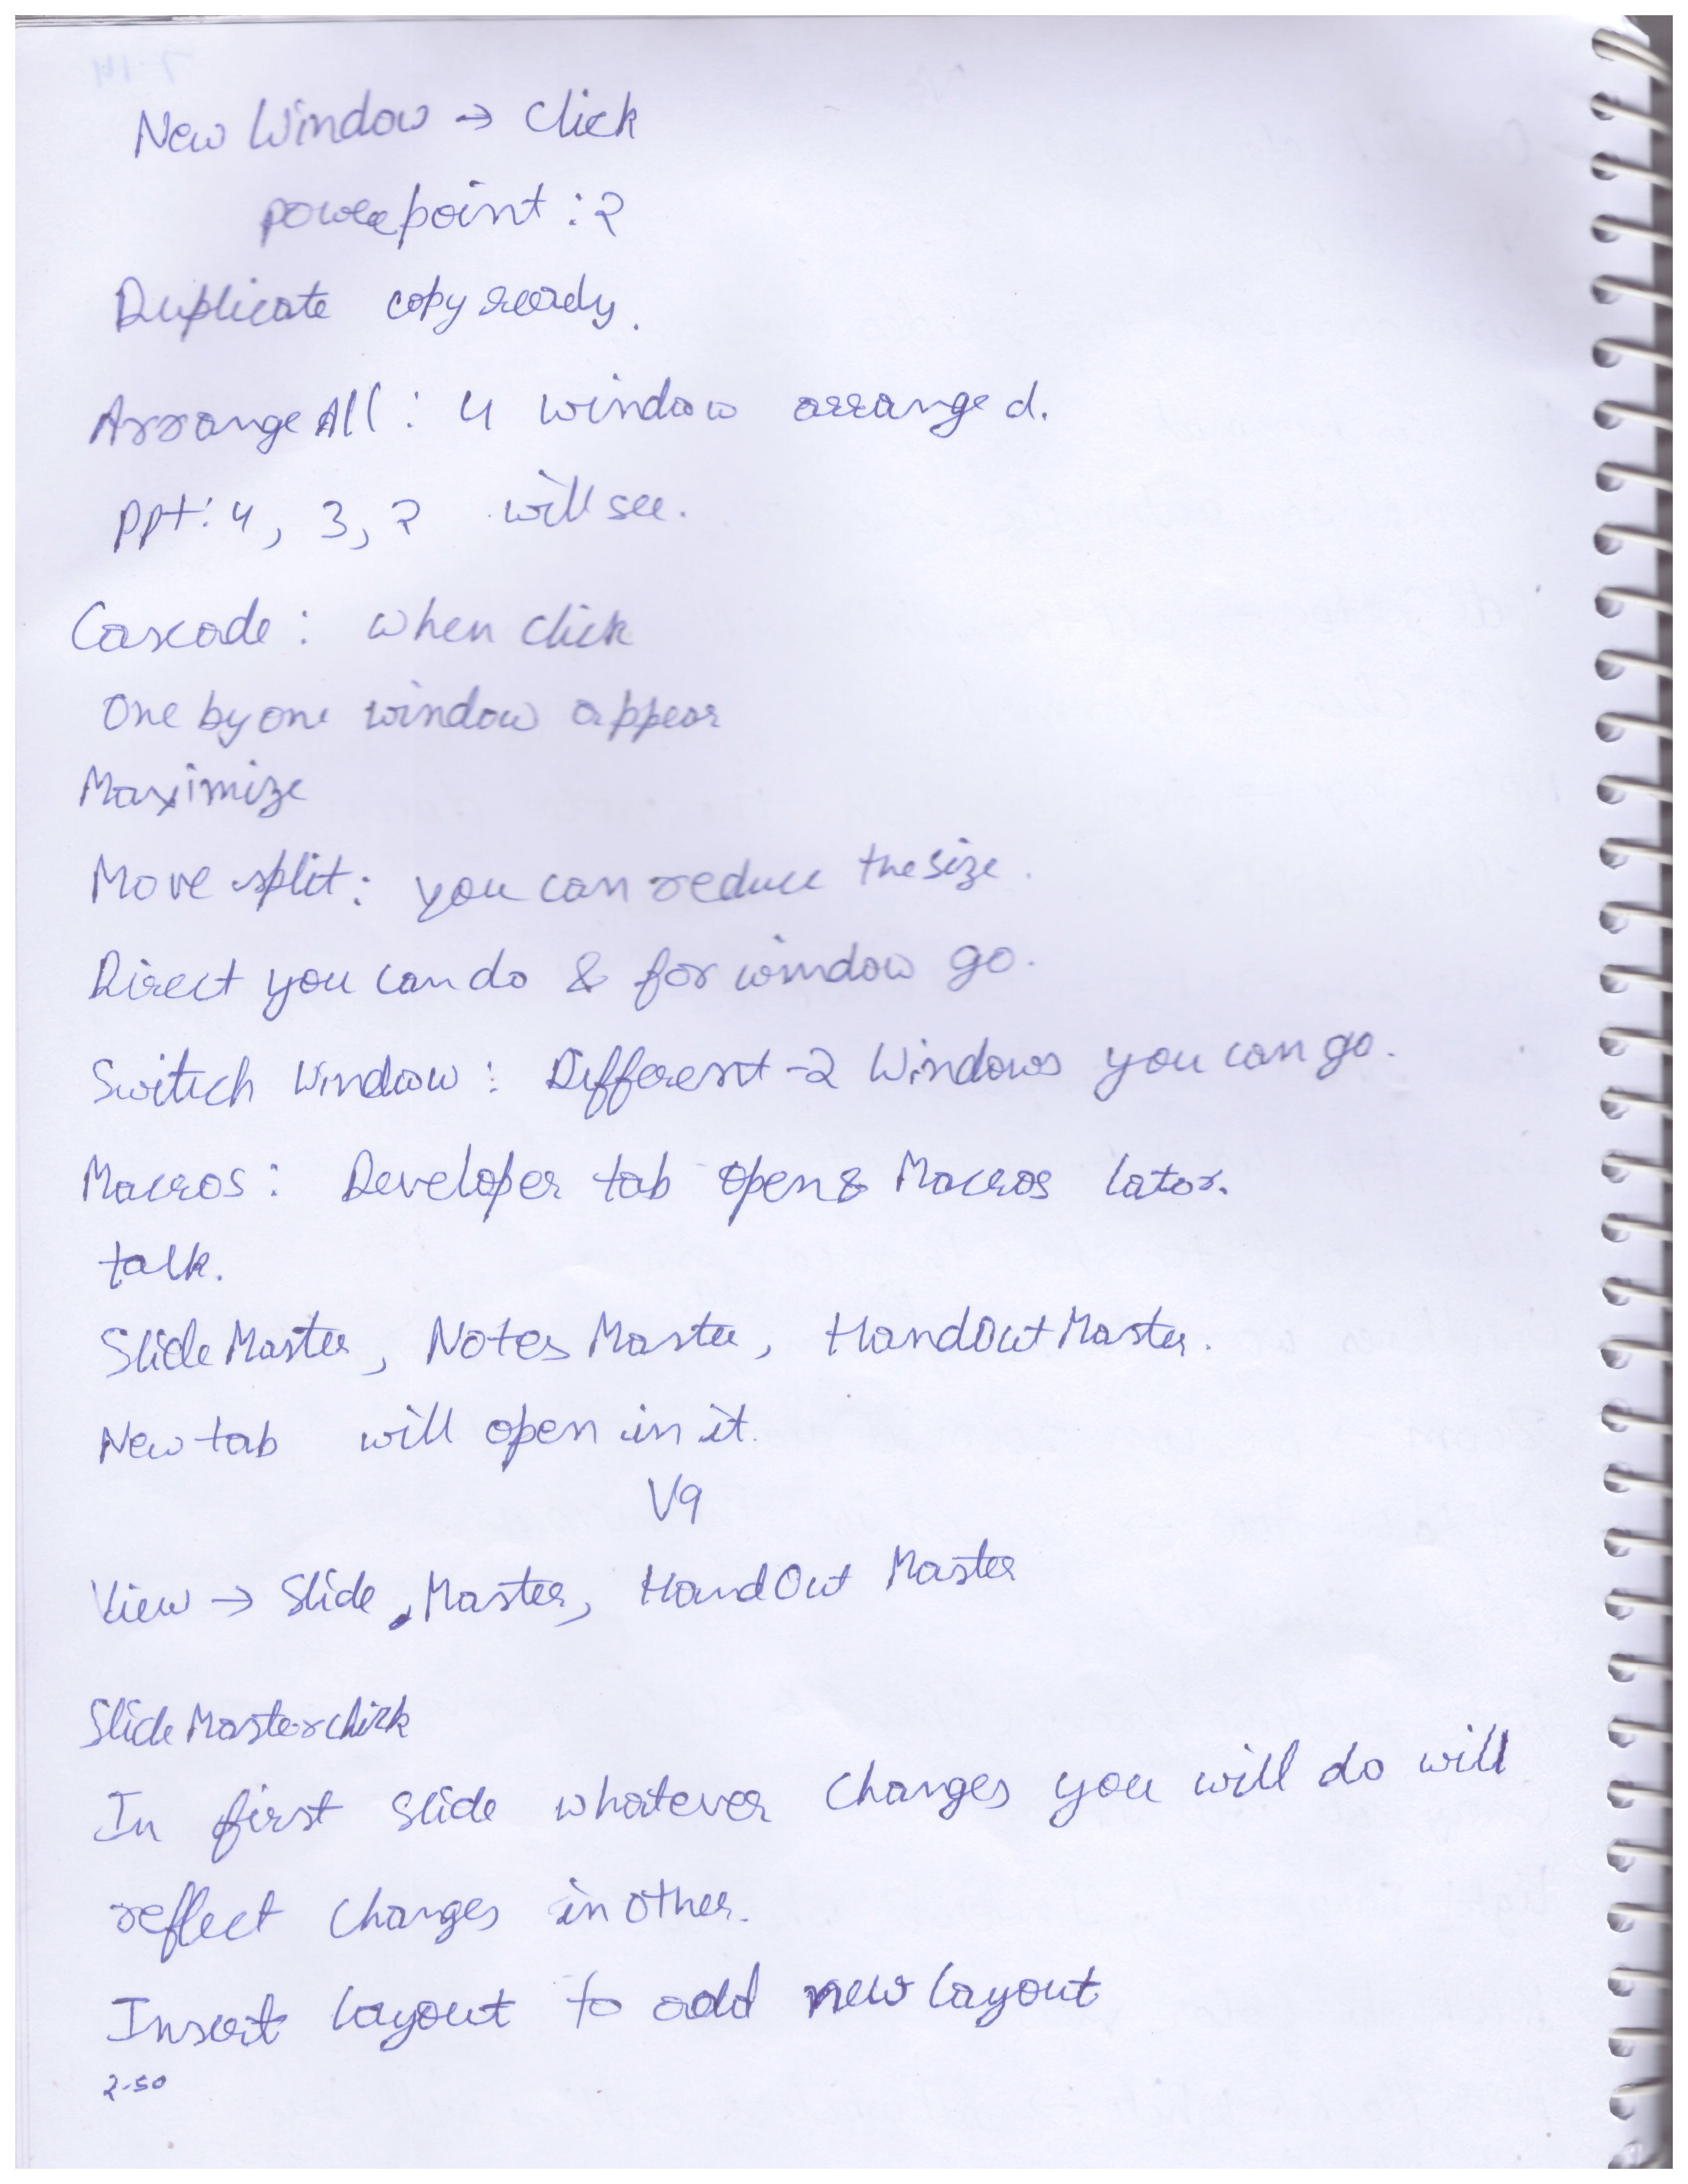 New Window → Click
powerpoint : 2
Duplicate copy ready.
Arrange All : 4 window arranged.
ppt : 4, 3, 2 will see.
Cascade : when click
One by one window appear
Maximize
Move split : you can reduce the size.
Direct you can do & for window go.
Switch Window : Different-2 Windows you can go.
Macros : Developer tab open & Macros lator.
talk.
Slide Master, Notes Master, HandOut Master.
New tab will open in it.
V9
View → Slide, Master, HandOut Master
Slide Master click
In first slide whatever changes you will do will
reflect changes in other.
Insert layout to add new layout
2-50